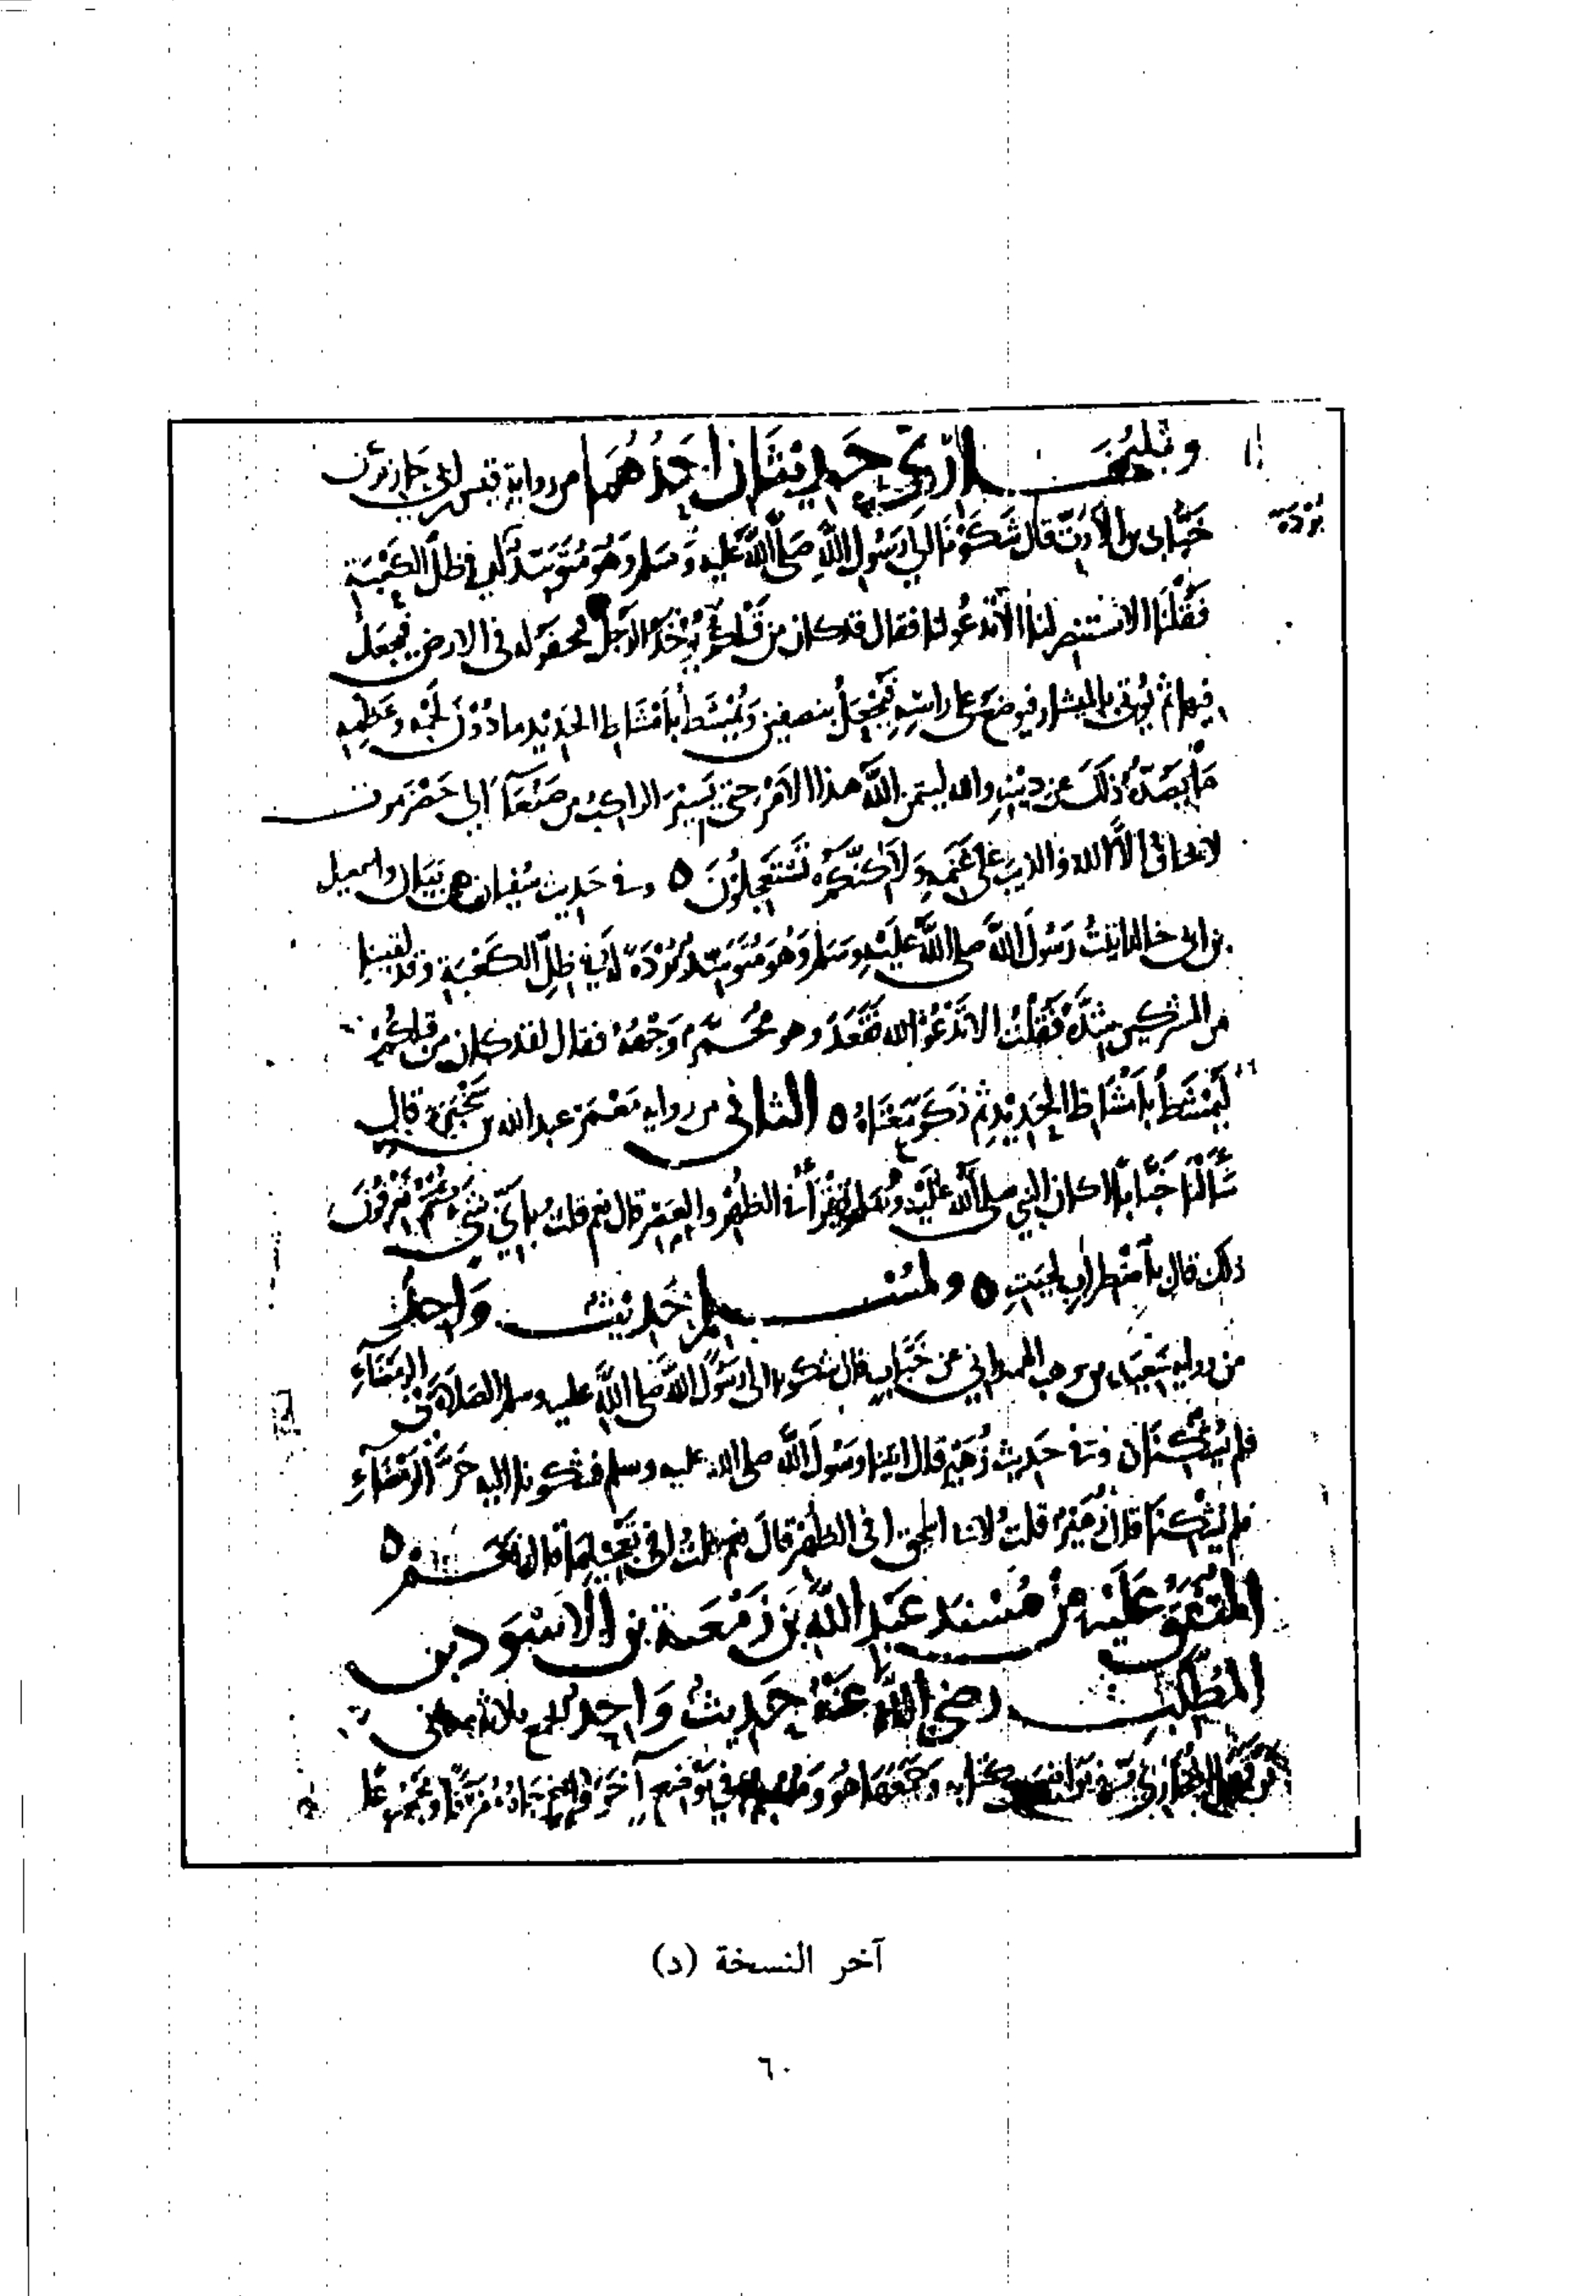 وللبخاري حديثان احدهما من رواية قيس بن ابي حازم عن
بردة
خباب بن الارت قال شكونا الي رسول الله صلى الله عليه وسلم وهو متوسد في ظل الكعبة
فقلنا الا تستنصر لنا الا تدعو لنا فقال قد كان من قبلكم يؤخذ الرجل فيحفر له في الارض فيجعل
فيها ثم يؤتى بالمنشار فيوضع على راسه فيجعل بنصفين ويمشط بامشاط الحديد ما دون لحمه وعظمه
ما يصده ذلك عن دينه والله ليتمن الله هذا الامر حتى يسير الراكب من صنعآ الي حضرموت
لا يخاف الا الله والذيب على غنمه ولاكنكم تستعجلون ٥ وفي حديث سفيان عن بيان واسمعيل
بن ابي خالد اتيت رسول الله صلى الله عليه وسلم وهو متوسد بردة له في ظل الكعبة وقد لقينا
من المشركين شدة فقلت الا تدعو الله فقعد وهو محمر وجهه فقال لقد كان من قبلكم
ليمشط بامشاط الحديد ثم ذكر معناه ٥ الثاني من رواية معمر عبد الله بن سخبرة قال
سألنا خبابا اكان النبي صلى الله عليه وسلم يقرأ في الظهر والعصر قال نعم قلت باي شيء كنتم تعرفون
ذلك قال باضطراب لحيته ٥ ولمسلم حديث واحد
من رواية سعيد بن وهب الهمداني عن خباب قال شكونا الى رسول الله صلى الله عليه وسلم الصلاة في الرمضآء
فلم يشكنا ٥ وفي حديث زهير قال اتينا رسول الله صلى الله عليه وسلم فشكونا اليه حر الرمضآء
فلم يشكنا قال زهير قلت لابي اسحق افي الظهر قال نعم قلت افي تعجيلها قال نعم ٥
المتفق عليه من مسند عبد الله بن زمعة بن الاسود بن
المطلب رضي الله عنه حديث واحد يجمع ثلاثة معاني
البخاري في كتابه وجمعها هو ومسلم في موضع آخر
آخر النسخة (د)
٦٠